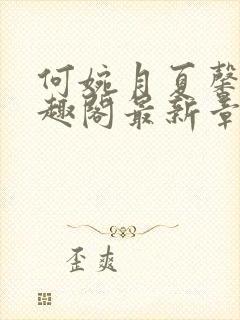 何婉月夏馨
趣阁最新章
歪爽